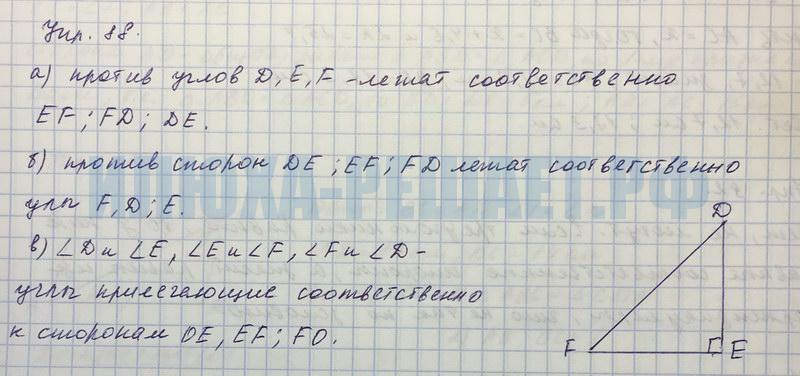 Упр. 88.
а) против углов D, E, F - лежат соответственно
EF; FD; DE.
б) против сторон DE; EF; FD лежат соответственно
углы F, D; E.
в) ∠D и ∠E, ∠E и ∠F, ∠F и ∠D -
углы прилегающие соответственно
к сторонам DE, EF; FD.
D
F
E